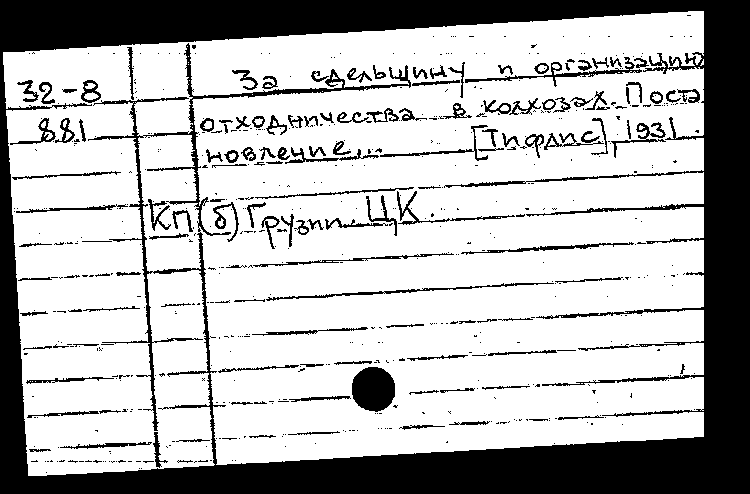 32-8
За сдельщину и организацию
881
отходничества в колхозах. Поста
новление... [Тифлис], 1931.
КП(б) Грузии. ЦК.